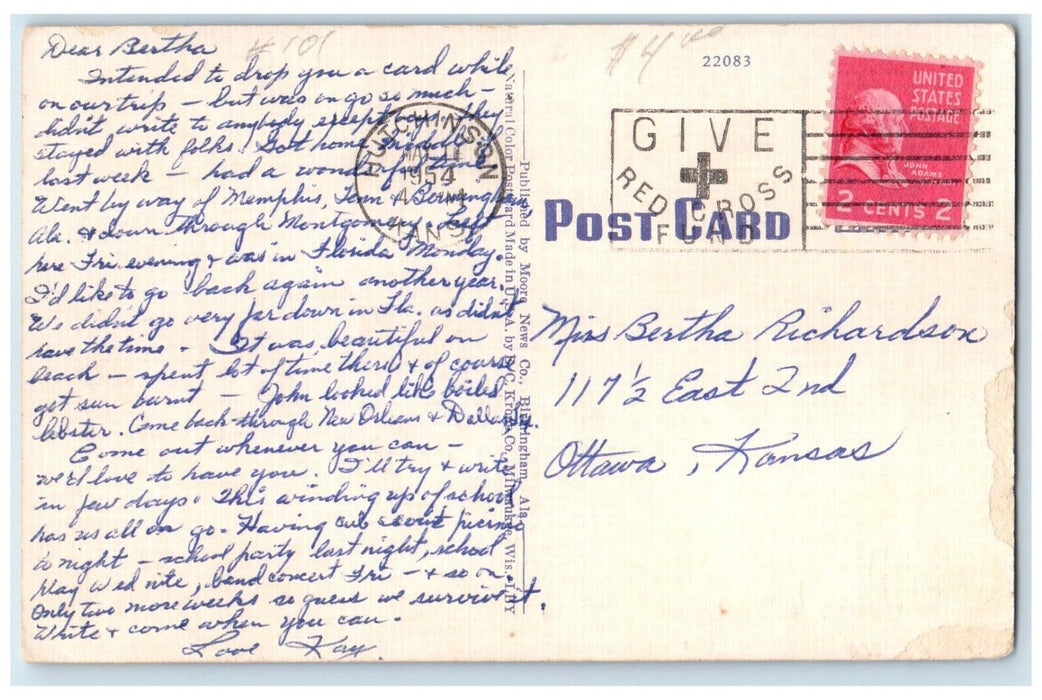 Dear Bertha
Intended to drop you a card while
on our trip - but was on go so much -
didn't write to anybody except family they
stayed with folks. Got home middle of
last week - had a wonderful time
Went by way of Memphis, Tenn & Birmingham
Ala. & down through Montgomery - left
here Fri. evening & was in Florida Monday.
I'd like to go back again another year.
We didn't go very far down in Fla. as didn't
have the time - It was beautiful on
beach - spent lot of time there & of course
got sun burnt - John looked like boiled
lobster. Came back through New Orleans & Dallas Tx.
Come out whenever you can -
we'd love to have you. I'll try & write
in few days. This winding up of school
has us all on go. Having cub scout picnic
to night - school party last night, school
play Wed nite, band concert Fri - & so on.
Only two more weeks so guess we survive it.
Write & come when you can.
Love Kay.
#101
$4.00
22083
HUTCHINSON
1954
KANS
GIVE
RED CROSS
FUND
UNITED
STATES
POSTAGE
JOHN
ADAMS
2 CENTS 2
POST CARD
Published by Moore News Co., Birmingham, Ala.
Natural Color Post Card Made in U.S.A. by E. C. Kropp Co., Milwaukee, Wis.
Miss Bertha Richardson
117½ East 2nd
Ottawa, Kansas